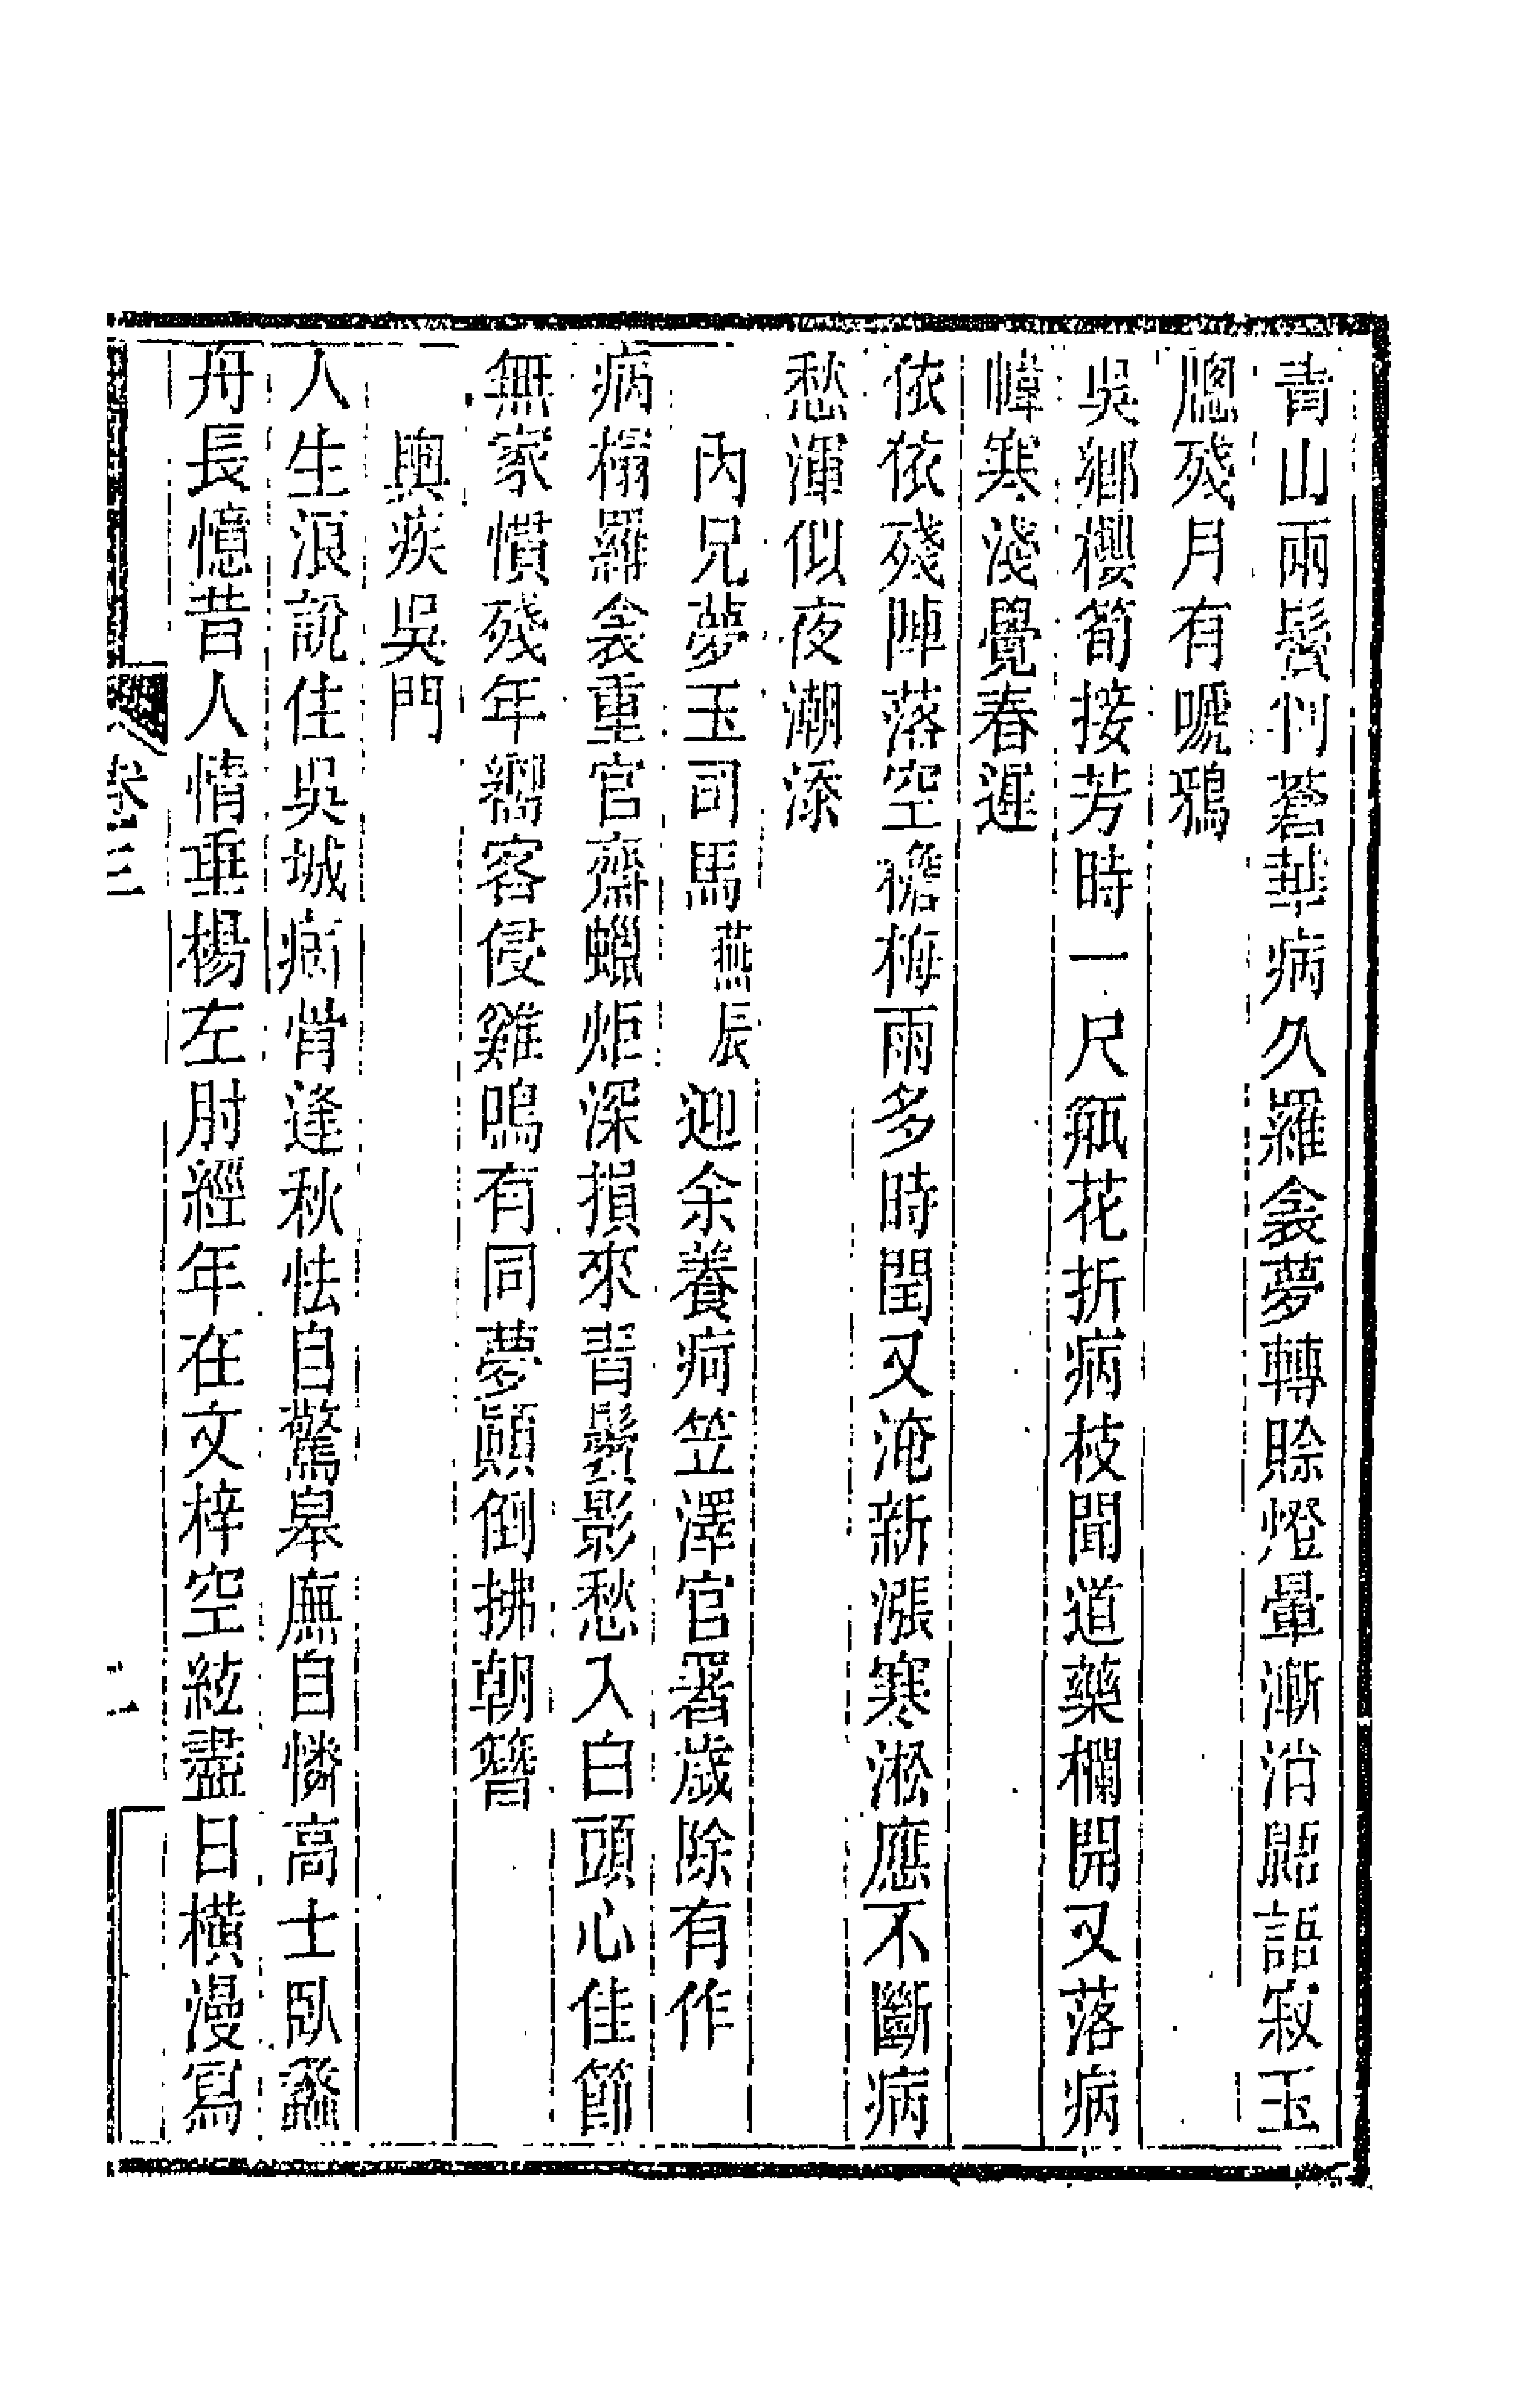 青山兩鬢判蒼華病久羅衾夢轉賒燈暈漸消鼯語寂玉
牕殘月有嗁鴉
吳鄉櫻筍接芳時一尺瓶花折病枝聞道藥欄開又落病
幃寒淺覺春遲
依依殘陣落空檐梅雨多時閏又淹新漲寒淞應不斷病
愁渾似夜潮添
內兄夢玉司馬燕辰迎余養疴笠澤官署歲除有作
病榻羅衾重官齋蠟炬深損來青鬢影愁入白頭心佳節
無家慣殘年嚮客侵雞鳴有同夢顚倒拂朝簪
輿疾吳門
人生浪說佳吳城病骨逢秋怯自驚皋廡自憐高士臥蠡
舟長憶昔人情垂楊左肘經年在文梓空絃盡日橫漫寫
卷三
二